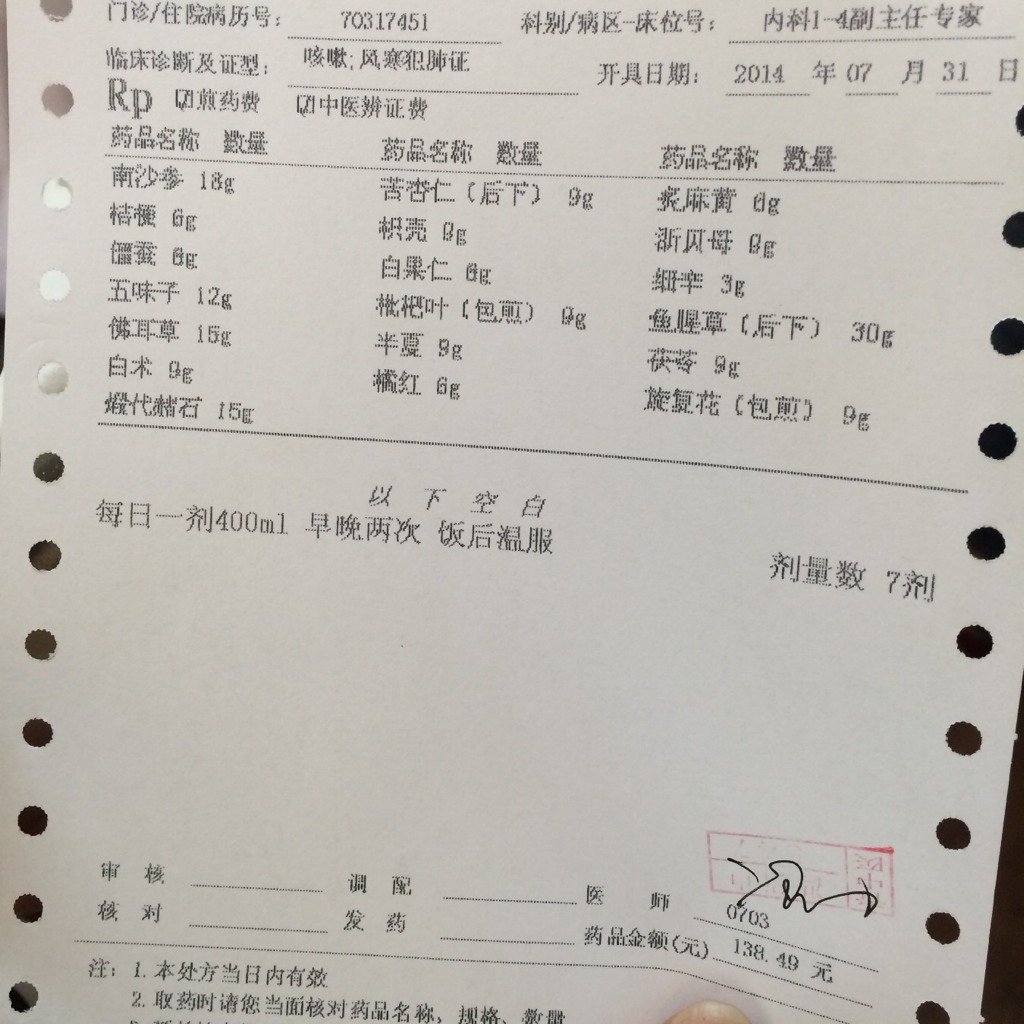 门诊/住院病历号: 70317451 科别/病区-床位号: 内科1-4副主任专家
临床诊断及证型: 咳嗽;风寒犯肺证 开具日期: 2014 年 07 月 31 日
Rp ☑煎药费 ☑中医辨证费
药品名称 数量 药品名称 数量 药品名称 数量
南沙参 18g 苦杏仁(后下) 9g 炙麻黄 6g
桔梗 6g 枳壳 9g 浙贝母 9g
僵蚕 6g 白果仁 6g 细辛 3g
五味子 12g 枇杷叶(包煎) 9g 鱼腥草(后下) 30g
佛耳草 15g 半夏 9g 茯苓 9g
白术 9g 橘红 6g 旋复花(包煎) 9g
煅代赭石 15g
以下空白
每日一剂400ml 早晚两次 饭后温服
剂量数 7剂
审 核 调 配 医 师 0703
核 对 发 药 药品金额(元) 138.49 元
注: 1.本处方当日内有效
2.取药时请您当面核对药品名称, 规格、数量